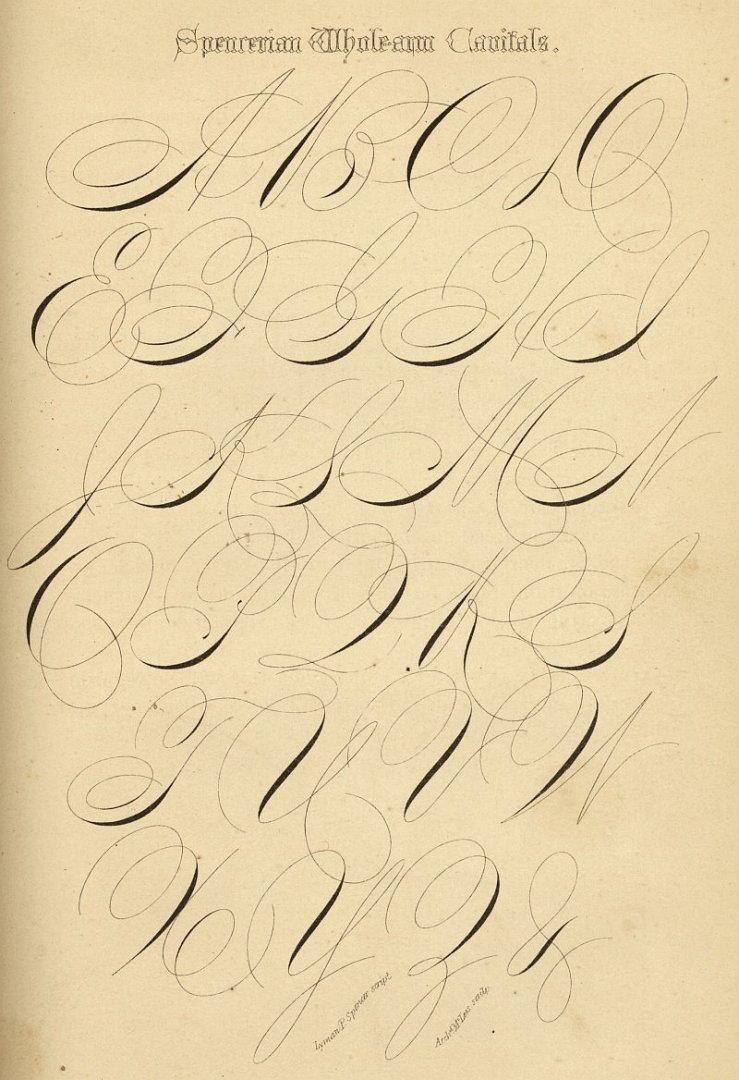 Spencerian Whole-arm Capitals.
A B C D
E F G H I
J K L M N
O P Q R S
T U V W
X Y Z &
Lyman P. Spencer script.
Arch'd McLees sculp.